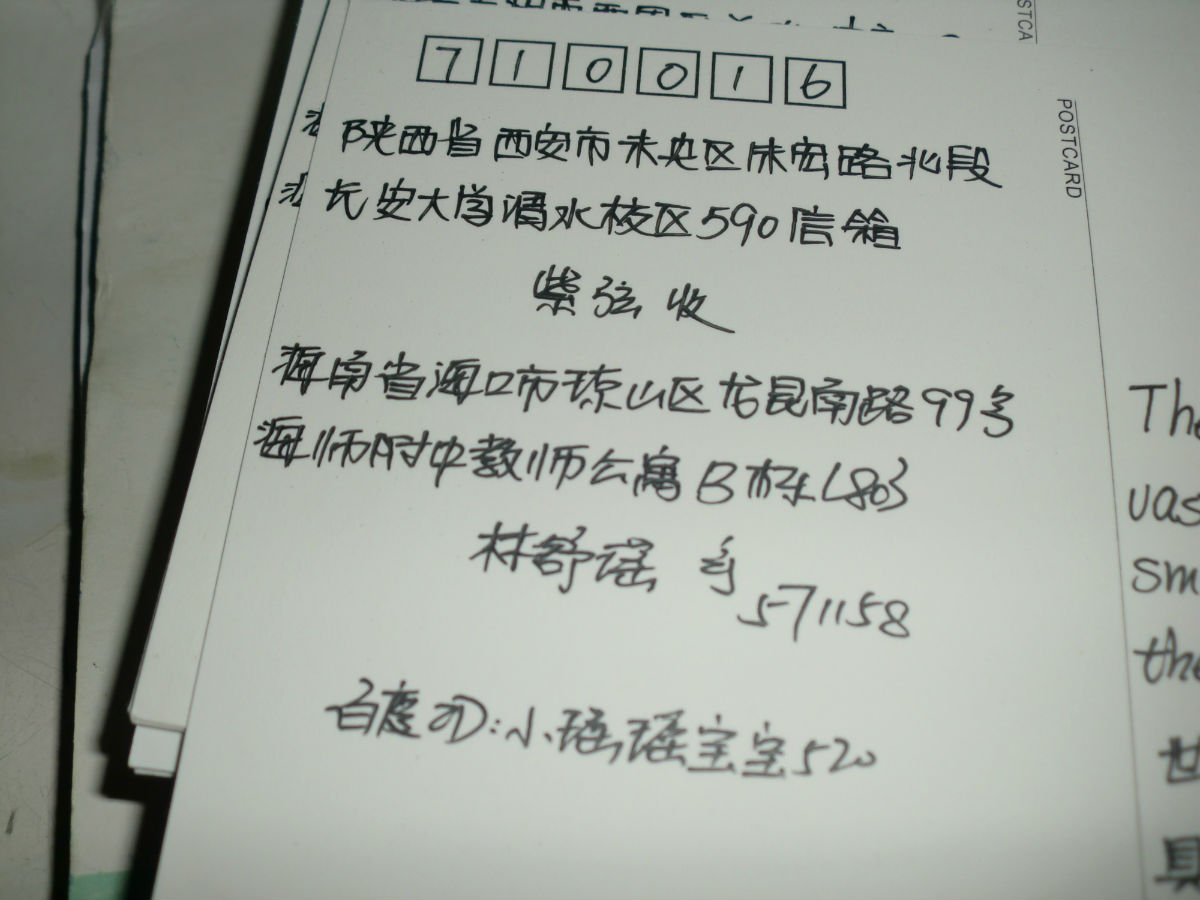 710016
陕西省西安市未央区朱宏路北段
长安大学渭水校区590信箱
紫弦 收
海南省海口市琼山区龙昆南路99号
海师附中教师公寓B栋L803
林舒瑶 寄
571158
百度ID:小瑶瑶宝宝520
POSTCARD
STCA
The
vas
sm
the
世
具